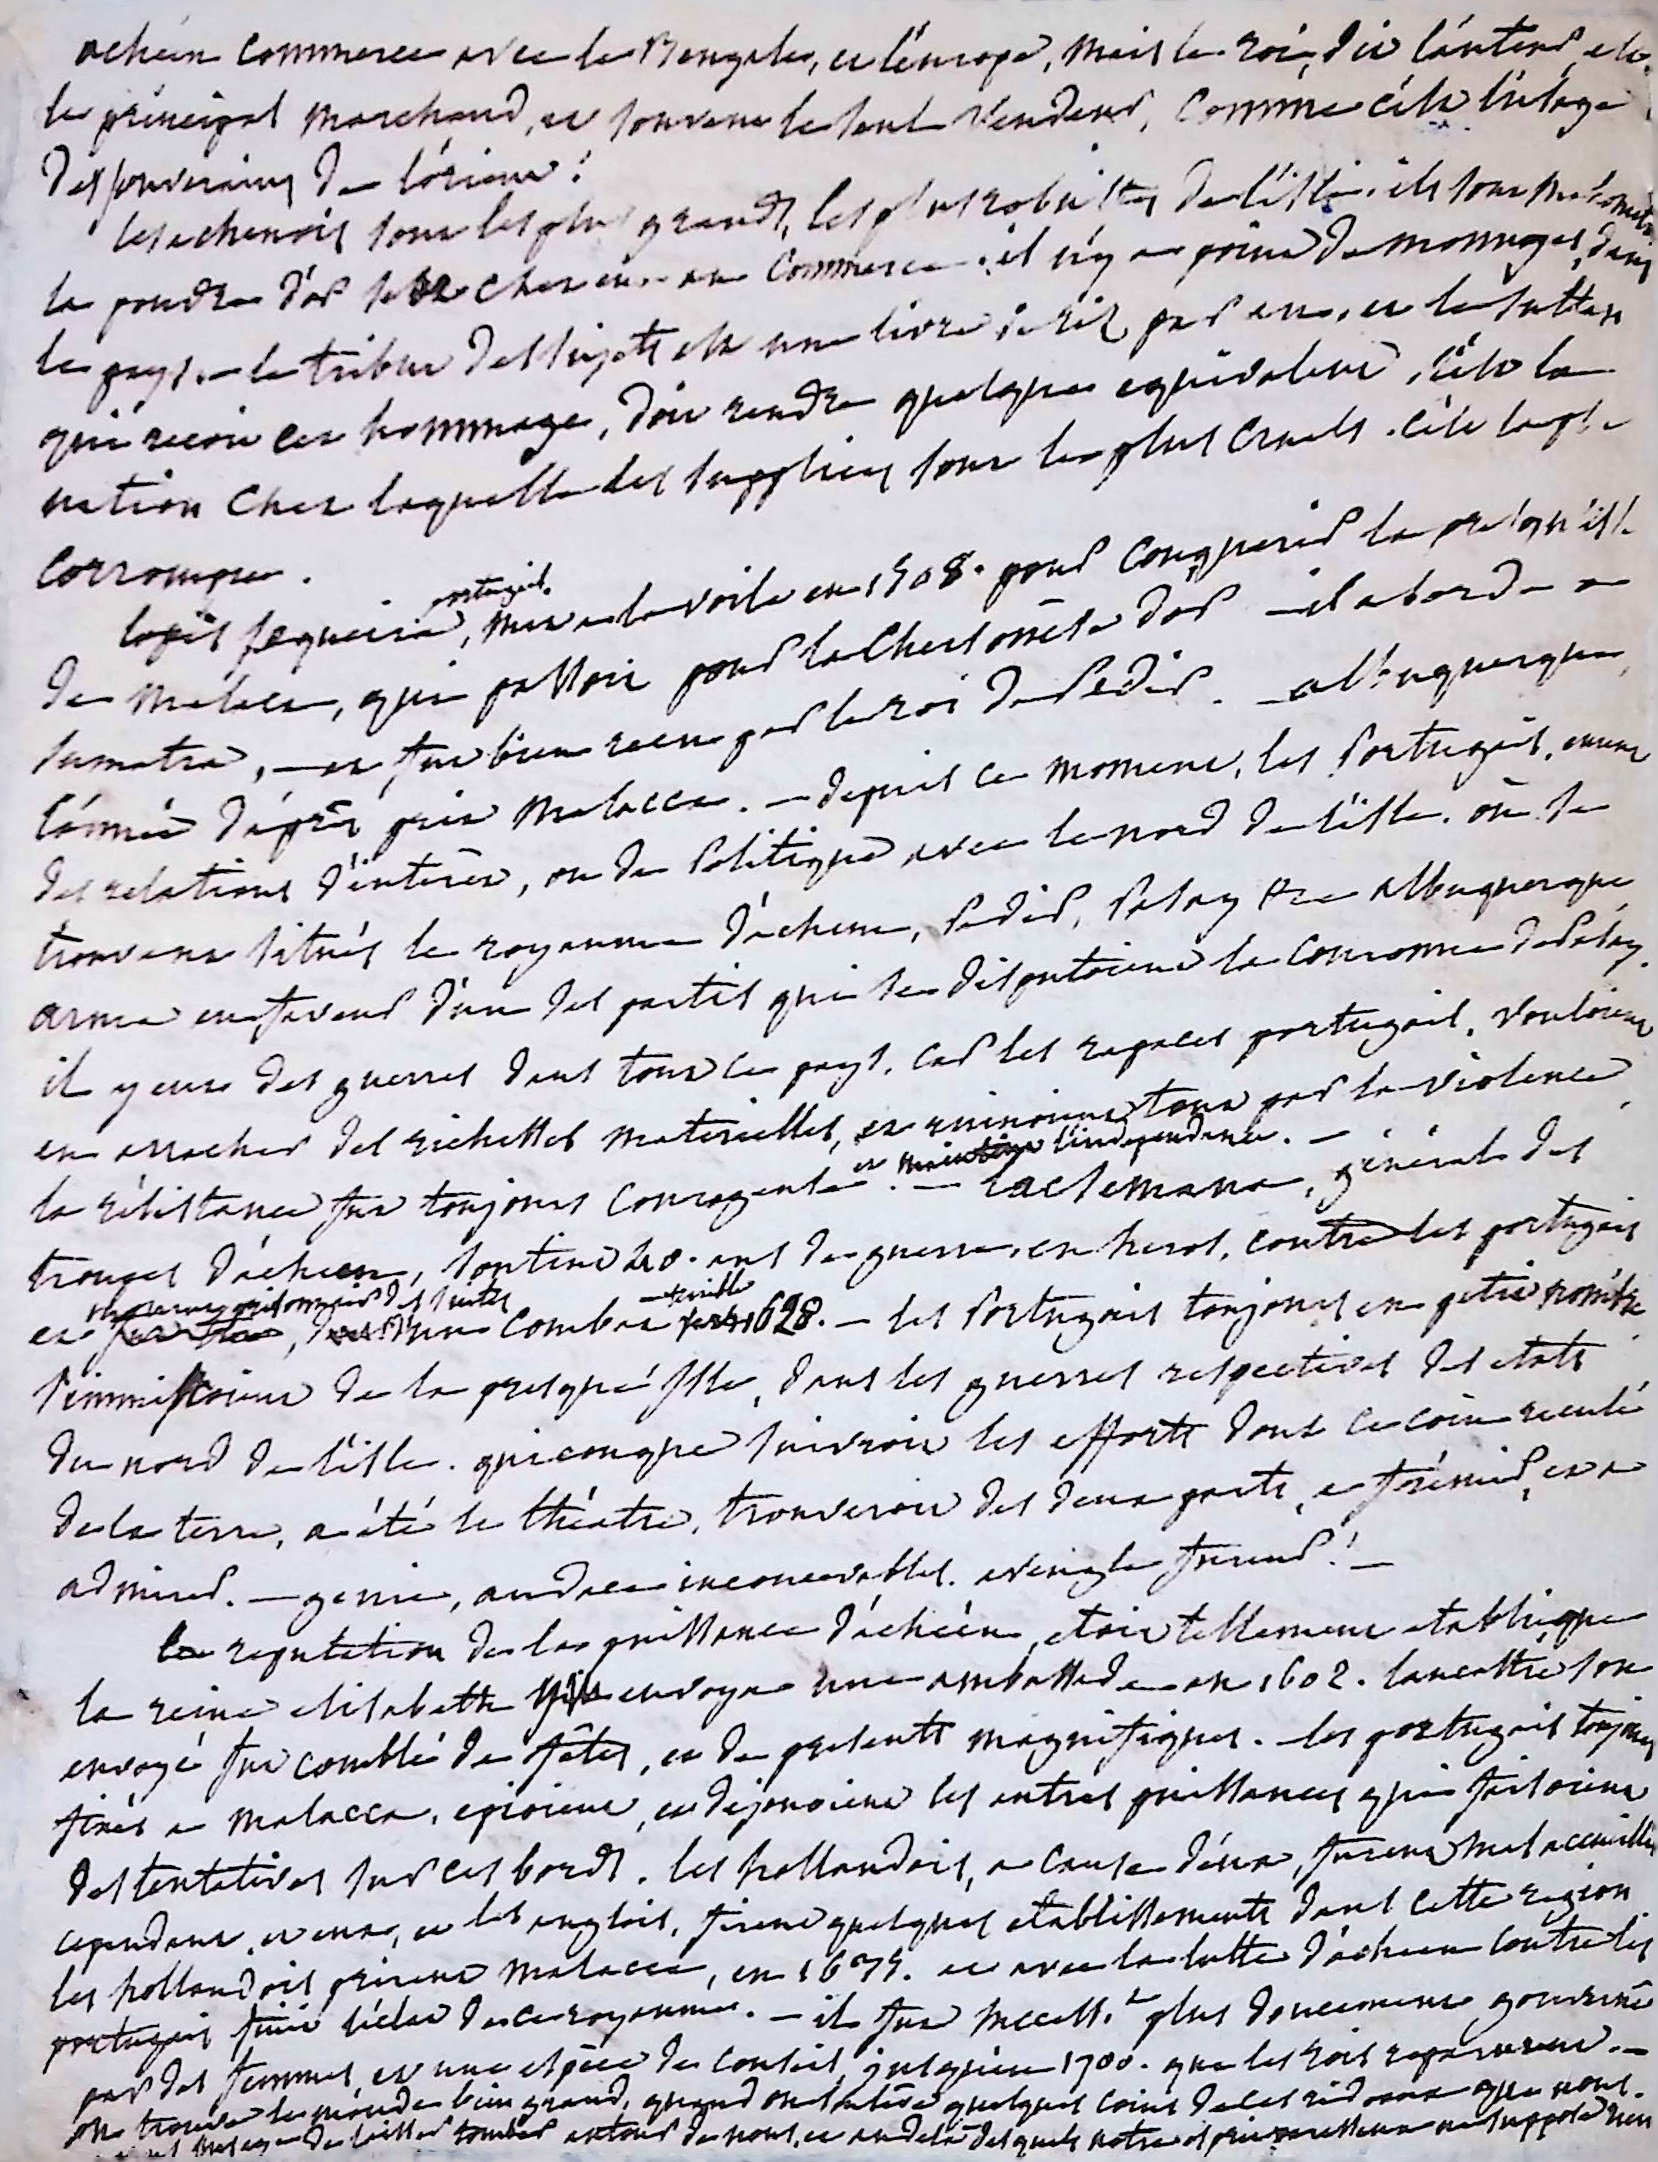 achéen commerce avec le Bengale, et l'europe, mais le roi, dit l'auteur, est
le principal marchand, et souvent le seul vendeur, comme c'est l'usage
des souverains de l'orient.
les achenois sont les plus grands, les plus robustes de l'isle. ils sont mahometans
la poudre d'or sert chez eux au commerce. il n'y a point de monnoyes, dans
le pays. — le tribut des sujets est une livre de riz par an, et le sultan
qui recoit cet hommage, doit rendre quelque equivalent, c'est la
nation chez laquelle les supplices sont les plus cruels. c'est la plus
corrompue.
lopès sequeira, portugais, mit a la voile en 1508. pour conquerir la presqu'isle
de malaca, qui passoit pour la Chersonèse d'or — il aborda a
sumatra, — et fut bien recu par le roi de Pedir. — albuquerque,
l'année d'après prit Malacca. — depuis ce moment, les Portugais, eurent
des relations d'interèt, ou de Politique avec le nord de l'isle. où se
trouvent situés le royaume d'achem, Pedir, Pasay &c albuquerque
arma en faveur d'un des partis qui se disputoient la couronne de Pasay.
il y eut des guerres dans tout ce pays. car les rapaces portugais, vouloient
en arracher des richesses materielles, et ruinoient tout par la violence
la résistance fut toujours courageuse et maintint l'independance. —
— lacsemana, général des
troupes d'achem, soutint 40. ans de guerre, en heros, contre les portugais
et mourut prisonnier des suites, d'un combat terrible 1628. — les Portugais toujours en petit nombre
s'immiscoient de la presqu'isle, dans les guerres respectives des etats
du nord de l'isle. quiconque suivroit les efforts dont ce coin reculé
de la terre, a été le théatre, trouveroit des deux parts, a frémir, et a
admirer. — genie, audace inconcevables. aveugle fureur! —
la reputation de la puissance d'achéen, etoit tellement etablie, que
la reine elisabeth envoya une ambassade en 1602. lancastre son
envoyé fut comblé de fêtes, et de presents magnifiques. — les portugais toujours
fixés a malacca, epioient, et dejouoient les autres puissances qui faisoient
des tentatives sur ces bords. les hollandois, a cause d'eux, furent mal accueillis
cependant, et eux, et les anglois, firent quelques etablissements dans cette region
les hollandois prirent malacca, en 1675. et avec la lutte d'acheen contre les
portugais finit l'éclat de ce royaume. — il fut plus doucement gouverné
par des femmes, et une espèce de conseil, jusqu'en 1700. que les rois reparurent. —
on trouve le monde bien grand, quand on soulève quelques coins de ces rideaux que nous
de laisser tomber autour de nous, et au delà desquels notre ne suppose rien